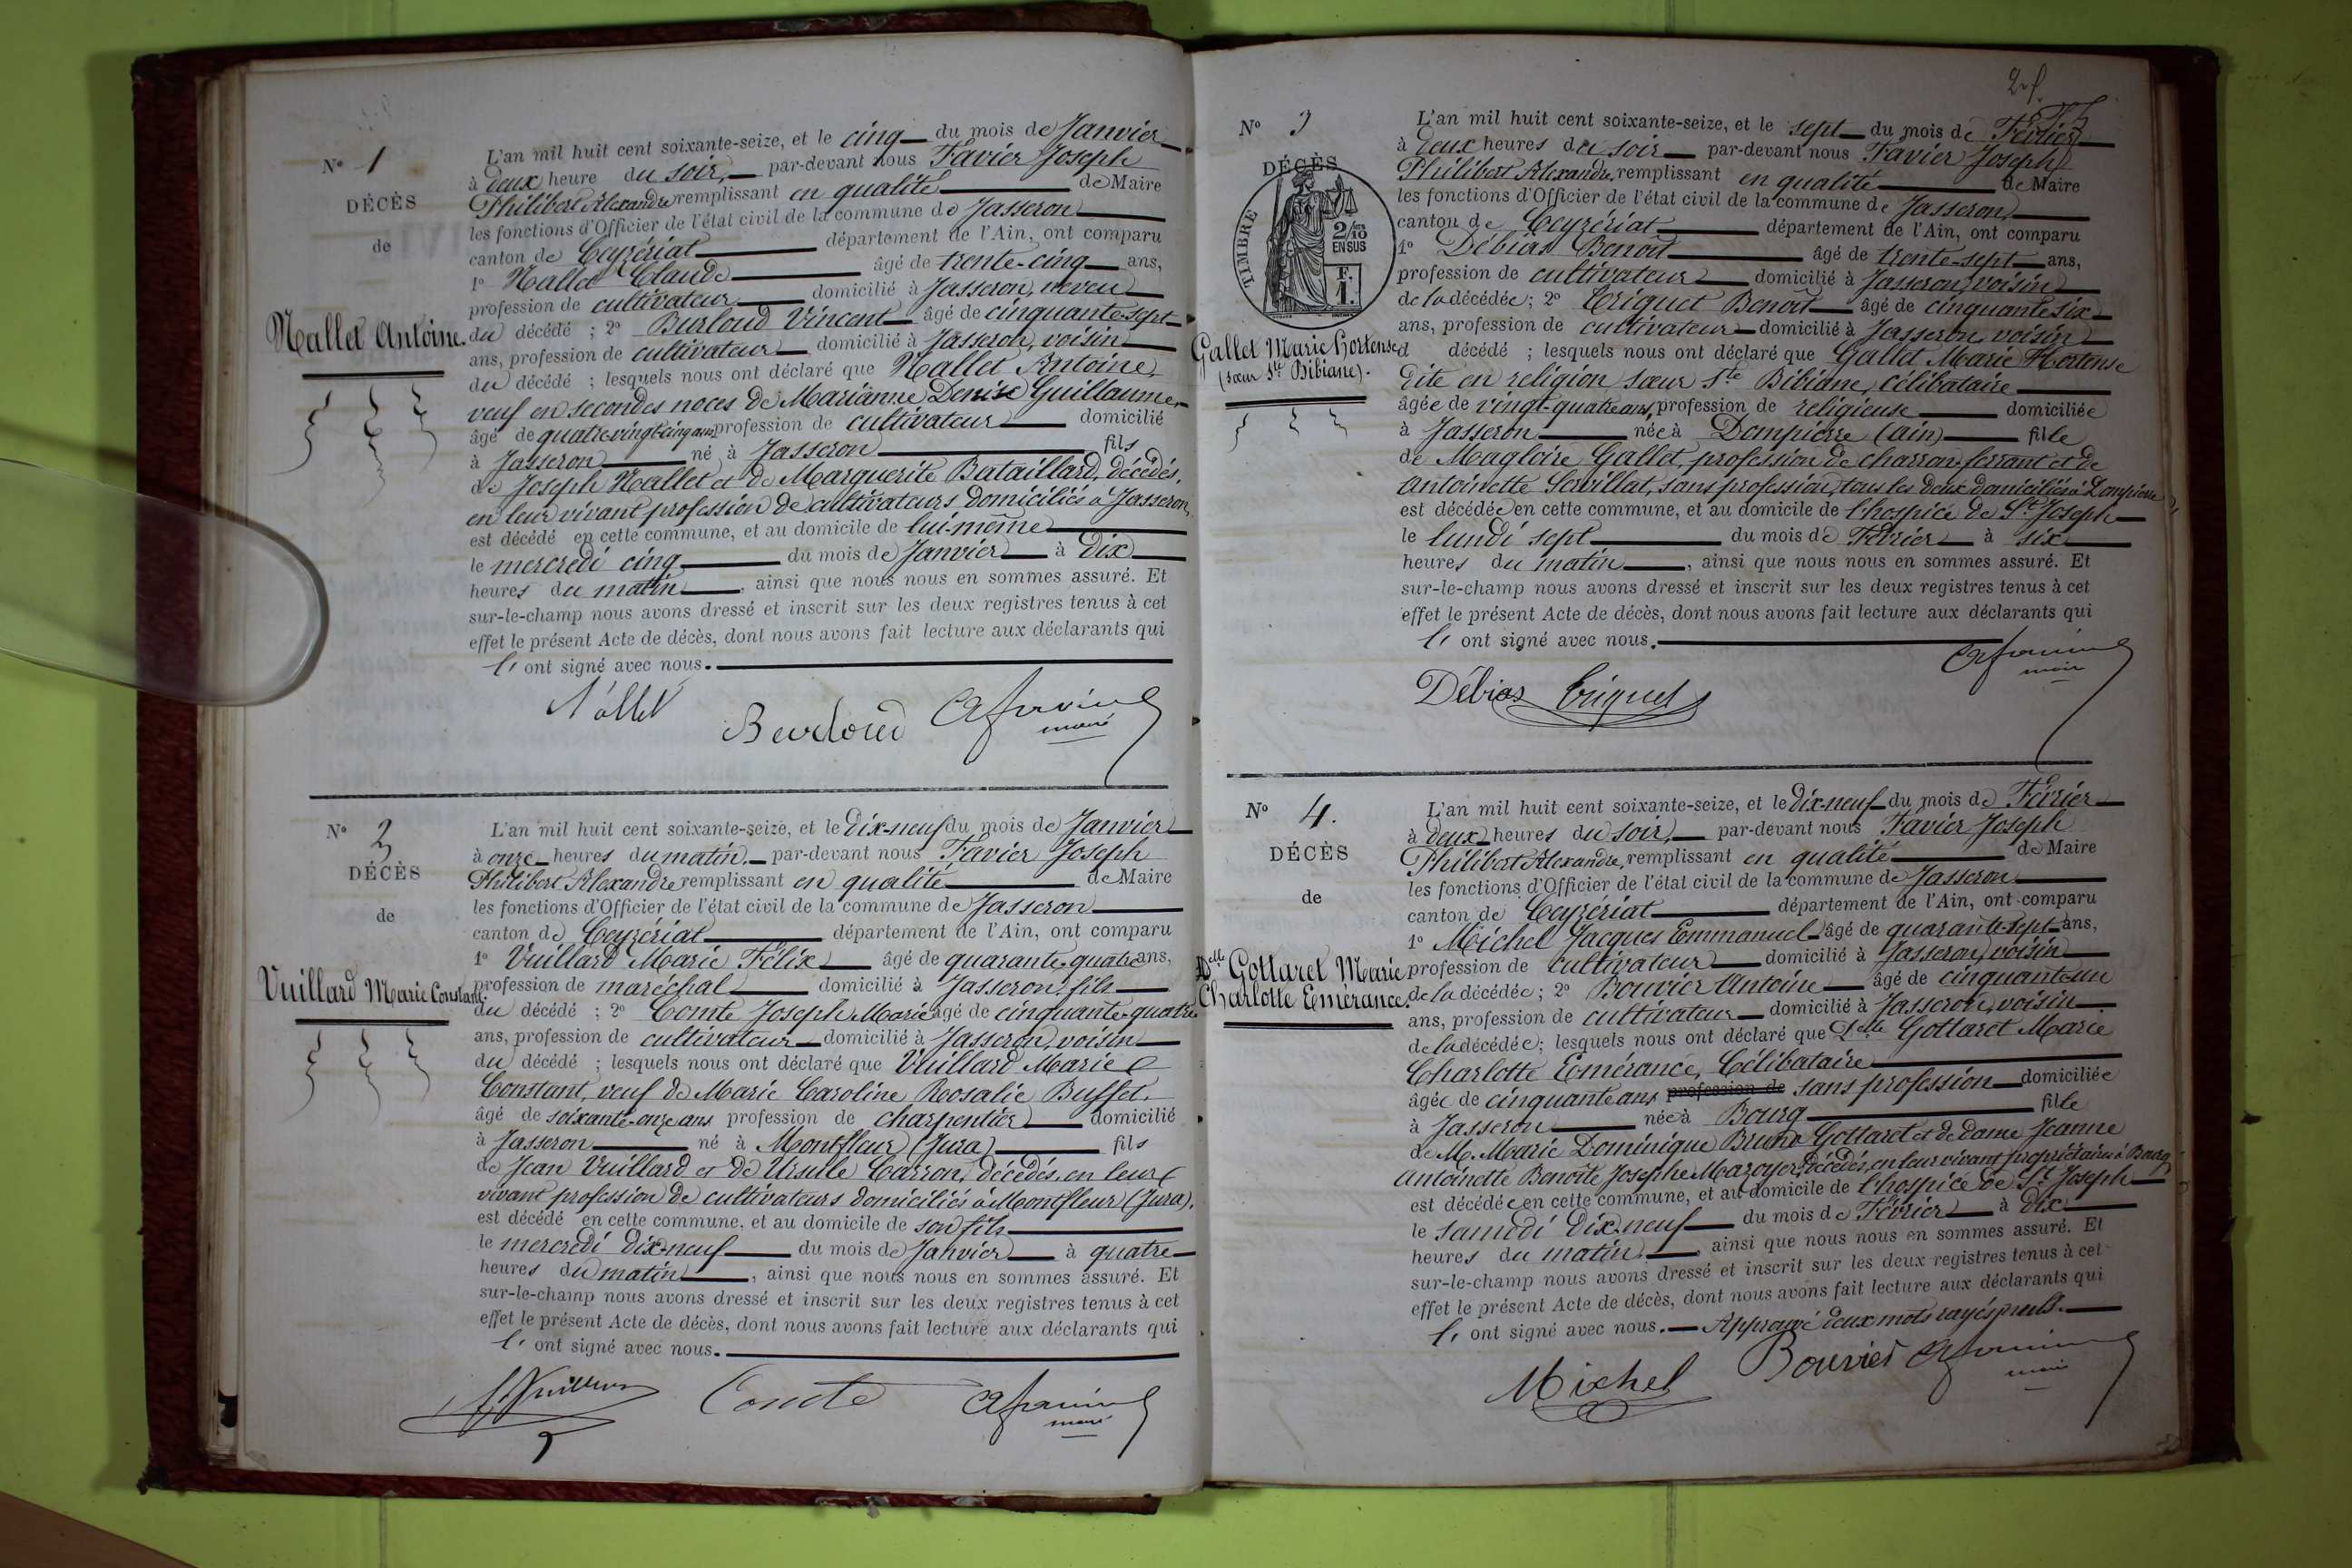 N° 1
DÉCÈS
de
Nallet Antoine.
L'an mil huit cent soixante-seize, et le cinq du mois de Janvier
à deux heure du soir, par-devant nous Favier Joseph
Philibert Alexandre remplissant en qualité de Maire
les fonctions d'Officier de l'état civil de la commune de Jasseron
canton de Ceyzériat département de l'Ain, ont comparu
1° Nallet Claude âgé de trente-cinq ans,
profession de cultivateur domicilié à Jasseron, neveu
du décédé ; 2° Burloud Vincent âgé de cinquante-sept
ans, profession de cultivateur domicilié à Jasseron, voisin
du décédé ; lesquels nous ont déclaré que Nallet Antoine,
veuf en secondes noces de Marianne Denise Guillaume,
âgé de quatre-vingt-cinq ans profession de cultivateur domicilié
à Jasseron né à Jasseron fils
de Joseph Nallet et de Marguerite Bataillard, décédés,
en leur vivant profession de cultivateurs domiciliés à Jasseron,
est décédé en cette commune, et au domicile de lui-même
le mercredi cinq du mois de Janvier à dix
heures du matin, ainsi que nous nous en sommes assuré. Et
sur-le-champ nous avons dressé et inscrit sur les deux registres tenus à cet
effet le présent Acte de décès, dont nous avons fait lecture aux déclarants qui
l' ont signé avec nous.
Nallet Burloud Afavier
maire
N° 2
DÉCÈS
de
Vuillard Marie Constant.
L'an mil huit cent soixante-seize, et le dix-neuf du mois de Janvier
à onze heures du matin. par-devant nous Favier Joseph
Philibert Alexandre remplissant en qualité de Maire
les fonctions d'Officier de l'état civil de la commune de Jasseron
canton de Ceyzériat département de l'Ain, ont comparu
1° Vuillard Marie Félix âgé de quarante-quatre ans,
profession de maréchal domicilié à Jasseron, fils
du décédé ; 2° Comte Joseph Marie âgé de cinquante-quatre
ans, profession de cultivateur domicilié à Jasseron, voisin
du décédé ; lesquels nous ont déclaré que Vuillard Marie
Constant, veuf de Marie Caroline Rosalie Buffet,
âgé de soixante-onze ans profession de charpentier domicilié
à Jasseron né à Montfleur (Jura) fils
de Jean Vuillard et de Ursule Carron, décédés, en leur
vivant profession de cultivateurs domiciliés à Montfleur (Jura),
est décédé en cette commune, et au domicile de son fils
le mercredi dix-neuf du mois de Janvier à quatre
heures du matin, ainsi que nous nous en sommes assuré. Et
sur-le-champ nous avons dressé et inscrit sur les deux registres tenus à cet
effet le présent Acte de décès, dont nous avons fait lecture aux déclarants qui
l' ont signé avec nous.
Comte Afavier
maire
2 f.
N° 3
DÉCÈS
TIMBRE
2/10
EN SUS
F.
1.
Gallet Marie Hortense
(sœur Ste Bibiane).
L'an mil huit cent soixante-seize, et le sept du mois de Février
à deux heures du soir par-devant nous Favier Joseph
Philibert Alexandre, remplissant en qualité de Maire
les fonctions d'Officier de l'état civil de la commune de Jasseron
canton de Ceyzériat département de l'Ain, ont comparu
1° Débias Benoît âgé de trente-sept ans,
profession de cultivateur domicilié à Jasseron, voisin
de la décédée; 2° Criquet Benoît âgé de cinquante six
ans, profession de cultivateur domicilié à Jasseron, voisin
d décédé ; lesquels nous ont déclaré que Gallet Marie Hortense
dite en religion sœur Ste Bibiane, célibataire
âgée de vingt-quatre ans, profession de religieuse domiciliée
à Jasseron née à Dompierre (Ain) fille
de Magloire Gallet, profession de charron-ferrant et de
Antoinette Servillat, sans profession, tous les deux domiciliés à Dompierre
est décédée en cette commune, et au domicile de l'hospice de St Joseph
le lundi sept du mois de Février à six
heures du matin, ainsi que nous nous en sommes assuré. Et
sur-le-champ nous avons dressé et inscrit sur les deux registres tenus à cet
effet le présent Acte de décès, dont nous avons fait lecture aux déclarants qui
l' ont signé avec nous.
Débias Criquet Afavier
maire
N° 4.
DÉCÈS
de
Delle Gottaret Marie
Charlotte Emérance.
L'an mil huit cent soixante-seize, et le dix-neuf du mois de Février
à deux heures du soir, par-devant nous Favier Joseph
Philibert Alexandre, remplissant en qualité de Maire
les fonctions d'Officier de l'état civil de la commune de Jasseron
canton de Ceyzériat département de l'Ain, ont comparu
1° Michel Jacques Emmanuel âgé de quarante-sept ans,
profession de cultivateur domicilié à Jasseron, voisin
de la décédée; 2° Bouvier Antoine âgé de cinquante-un
ans, profession de cultivateur domicilié à Jasseron, voisin
de la décédée; lesquels nous ont déclaré que Delle Gottaret Marie
Charlotte Emérance, Célibataire
âgée de cinquante ans profession de sans profession domiciliée
à Jasseron née à Bourg fille
de M. Marie Dominique Bruno Gottaret et de dame Jeanne
Antoinette Benoîte Josephe Mazoyer, décédés, en leur vivant propriétaires à Bourg,
est décédée en cette commune, et au domicile de l'hospice de St Joseph
le samedi dix-neuf du mois de Février à dix
heures du matin, ainsi que nous nous en sommes assuré. Et
sur-le-champ nous avons dressé et inscrit sur les deux registres tenus à cet
effet le présent Acte de décès, dont nous avons fait lecture aux déclarants qui
l' ont signé avec nous. Approuvé deux mots rayés nuls.
Michel Bouvier Afavier
maire